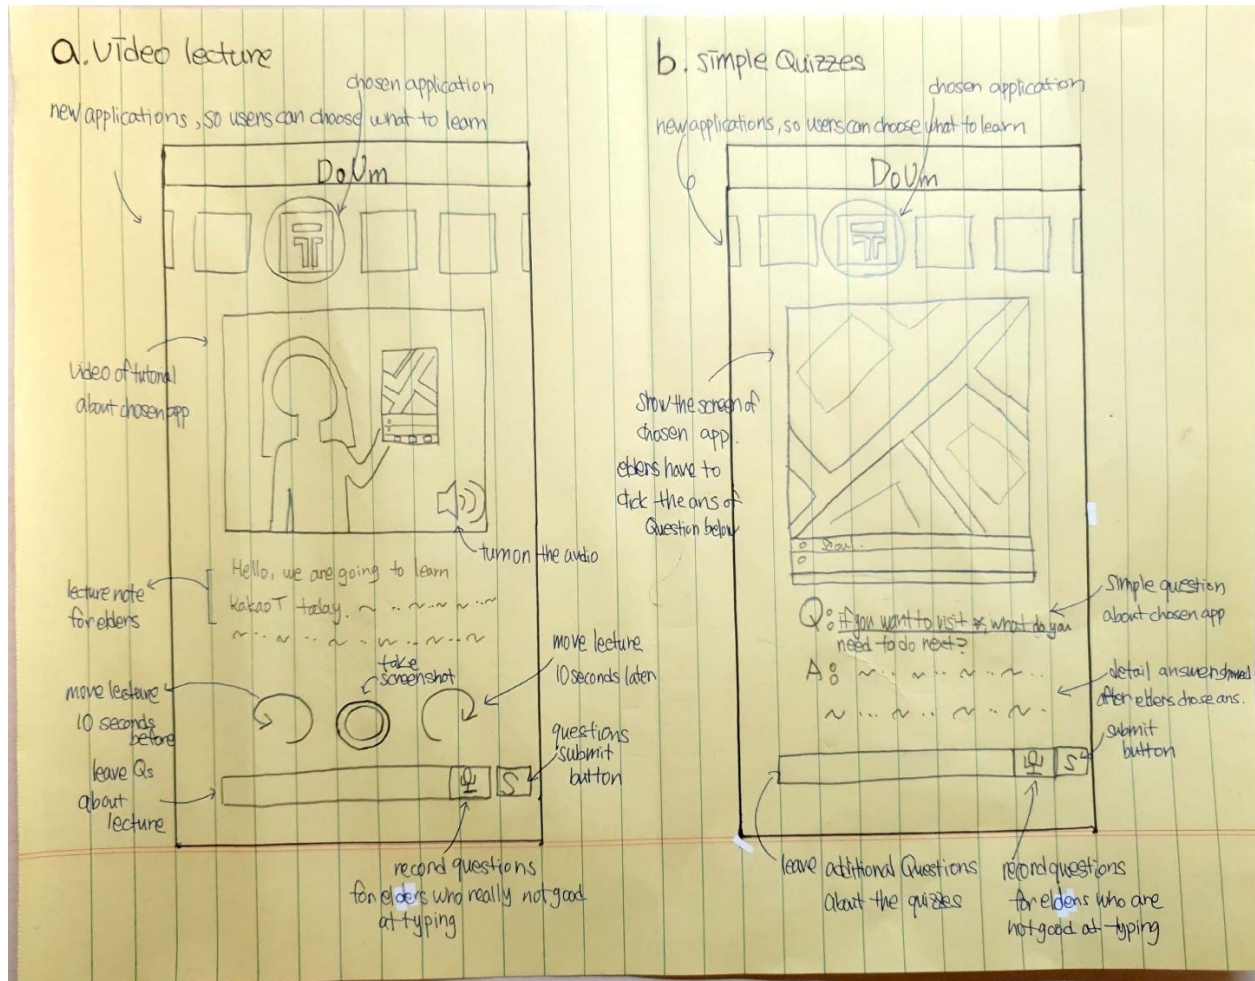 a. Video lecture
chosen application
new applications, so users can choose what to learn
DoUm
T
video of tutorial
about chosen app
turn on the audio
lecture note
for elders
Hello, we are going to learn
kakaoT today.
take
screenshot
move lecture
10 seconds
before
move lecture
10 seconds later
leave Qs
about
lecture
S
questions
submit
button
record questions
for elders who really not good
at typing
b. Simple Quizzes
chosen application
new applications, so users can choose what to learn
DoUm
T
show the screen of
chosen app.
elders have to
click the ans of
Question below
simple question
about chosen app
Q: if you want to visit *, what do you
need to do next?
A:
detail answer showed
after elders chose ans.
S
submit
button
leave additional Questions
about the quizzes
record questions
for elders who are
not good at typing